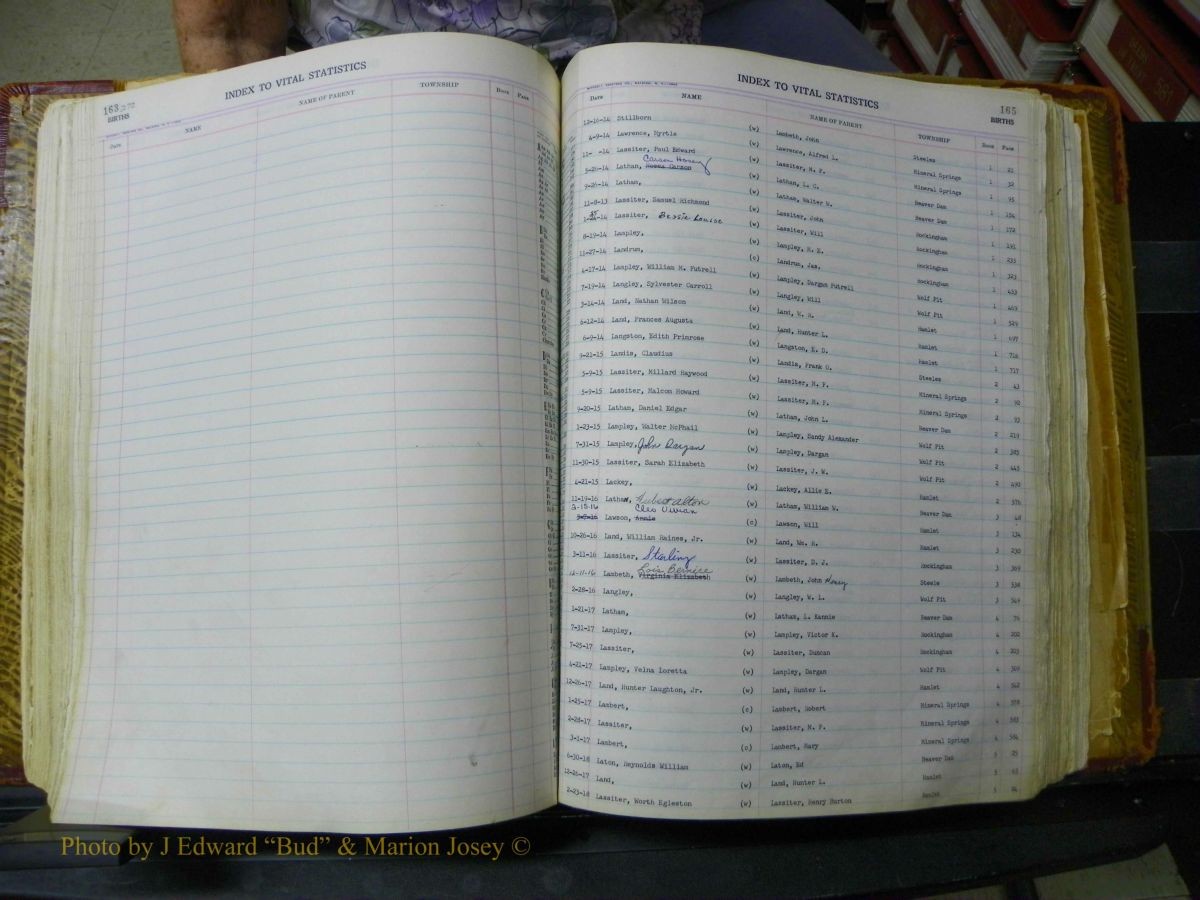 163
BIRTHS
INDEX TO VITAL STATISTICS
Date NAME NAME OF PARENT TOWNSHIP BOOK PAGE
INDEX TO VITAL STATISTICS
165
BIRTHS
Date NAME NAME OF PARENT TOWNSHIP BOOK PAGE
12-16-14 Stillborn (w) Lambeth, John Steeles 1 21
4-9-14 Lawrence, Myrtle (w) Lawrence, Alfred L. Mineral Springs 1 32
11- -14 Lassiter, Paul Edward (w) Lassiter, M. F. Mineral Springs 1 95
5-26-14 Lathan, Carson Haney (w) Lathan, L. C. Beaver Dam 1 154
9-26-14 Lathan, (w) Lathan, Walter W. Beaver Dam 1 172
11-8-13 Lassiter, Samuel Richmond (w) Lassiter, John Rockingham 1 191
Lassiter, Bessie Louise (w) Lassiter, Will Rockingham 1 235
8-19-14 Lampley, (w) Lampley, H. E. Rockingham 1 323
11-27-14 Landrum, (c) Landrum, Jas. Rockingham 1 433
4-17-14 Lampley, William M. Futrell (w) Lampley, Dargan Futrell Wolf Pit 1 469
7-19-14 Langley, Sylvester Carroll (w) Langley, Will Wolf Pit 1 529
3-14-14 Land, Nathan Wilson (w) Land, W. R. Hamlet 1 697
6-12-14 Land, Frances Augusta (w) Land, Hunter L. Hamlet 1 716
6-9-14 Langston, Edith Primrose (w) Langston, E. D. Hamlet 1 717
9-21-15 Landis, Claudius (w) Landis, Frank O. Steeles 2 43
5-9-15 Lassiter, Millard Haywood (w) Lassiter, M. F. Mineral Springs 2 92
5-9-15 Lassiter, Malcom Howard (w) Lassiter, M. F. Mineral Springs 2 93
9-20-15 Latham, Daniel Edgar (w) Latham, John L. Beaver Dam 2 219
1-23-15 Lampley, Walter McPhail (w) Lampley, Sandy Alexander Wolf Pit 2 385
7-31-15 Lampley, John Dargan (w) Lampley, Dargan Wolf Pit 2 445
11-30-15 Lassiter, Sarah Elizabeth (w) Lassiter, J. W. Wolf Pit 2 490
4-21-15 Lackey, (w) Lackey, Allie E. Hamlet 2 576
11-19-16 Lathan, Hubert Alton (w) Lathan, William W. Beaver Dam 3 48
Cleo Vivian
Lawson, Annie (c) Lawson, Will Hamlet 3 134
10-26-16 Land, William Raines, Jr. (w) Land, Wm. R. Hamlet 3 230
3-11-16 Lassiter, Sterling (w) Lassiter, D. J. Rockingham 3 369
Lois Bernice
12-11-16 Lambeth, Virginia Elizabeth (w) Lambeth, John Henry Steele 3 538
2-28-16 Langley, (w) Langley, W. L. Wolf Pit 3 549
1-21-17 Latham, (w) Latham, L. Kannie Beaver Dam 4 74
7-31-17 Lampley, (w) Lampley, Victor K. Rockingham 4 202
7-25-17 Lassiter, (w) Lassiter, Duncan Rockingham 4 203
4-21-17 Lampley, Velna Loretta (w) Lampley, Dargan Wolf Pit 4 309
12-26-17 Land, Hunter Laughton, Jr. (w) Land, Hunter L. Hamlet 4 342
1-25-17 Lambert, (c) Lambert, Robert Mineral Springs 4 578
2-28-17 Lassiter, (w) Lassiter, M. F. Mineral Springs 4 583
3-1-17 Lambert, (c) Lambert, Mary Mineral Springs 4 584
6-30-18 Laton, Reynolds William (w) Laton, Ed Beaver Dam 5 25
12-26-17 Land, (w) Land, Hunter L. Hamlet 5 63
2-23-18 Lassiter, Worth Egleston (w) Lassiter, Henry Burton Hamlet 5 84
Photo by J Edward “Bud” & Marion Josey ©